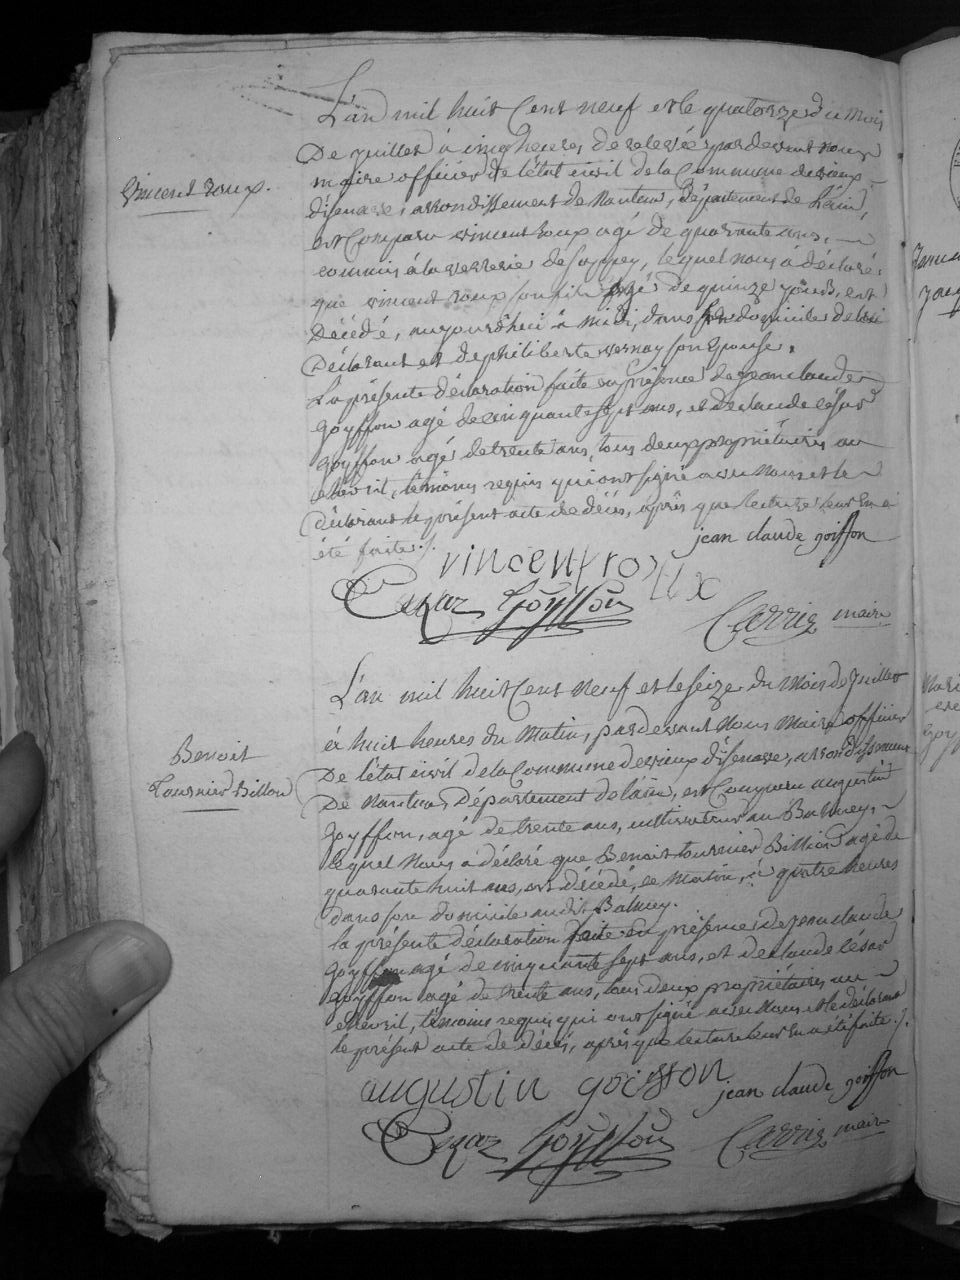 L'an mil huit Cent neuf et le quatorze du mois
De juillet à cinq heures de relevée pardevant nous
maire officier de l'état civil de la Commune de vieux
Vincent roux.
d'isenave, arrondissement de Nantua, Département de L'ain,
est Comparu vincent roux agé de quarante ans,
commis à la verrerie de lequel nous à déclaré
que vincent roux son fils agé de quinze jours, est
Décédé, aujourd'hui à midi, dans domicile de lui
Déclarant et de philiberte vernay son Epouse.
La présente déclaration faite en présence de jean claude
goyffon agé de cinquante sept ans, et de claude césar
goyffon agé de trente ans, tous deux propriétaires au
chevril, témoins requis qui ont signé avec nous et le
déclarant le présent acte de décès, après que lecture leur En a
été faite ./.
jean claude goiffon
vincent roux
Cezar Goÿffon
Carrig maire
L'an mil huit Cent Neuf et le seize du Mois de Juillet
à huit heures du Matin, pardevant Nous Maire officier
Benoit
De l'état civil de la Commune de vieux d'isenave, arrondissement
Tournier Billon
De Nantua, Département de l'ain, est Comparu augustin
Goyffon, agé de trente ans, cultivateur au Balmey,
lequel Nous a déclaré que Benoit tournier Billion agé de
quarante huit ans, est décédé, ce Matin, à quatre heures
dans son domicile audit Balmey.
la présente déclaration faite en présence de Jean claude
goyffon agé de cinquante sept ans, et de claude césar
goyffon agé de trente ans, tous deux propriétaires au
chevril, témoins requis qui ont signé avec Nous et le déclarant
le présent acte de décès, après que lecture leur En a été faite ./.
augustin goiffon
jean claude goiffon
Cezar Goÿffon
Carrig maire